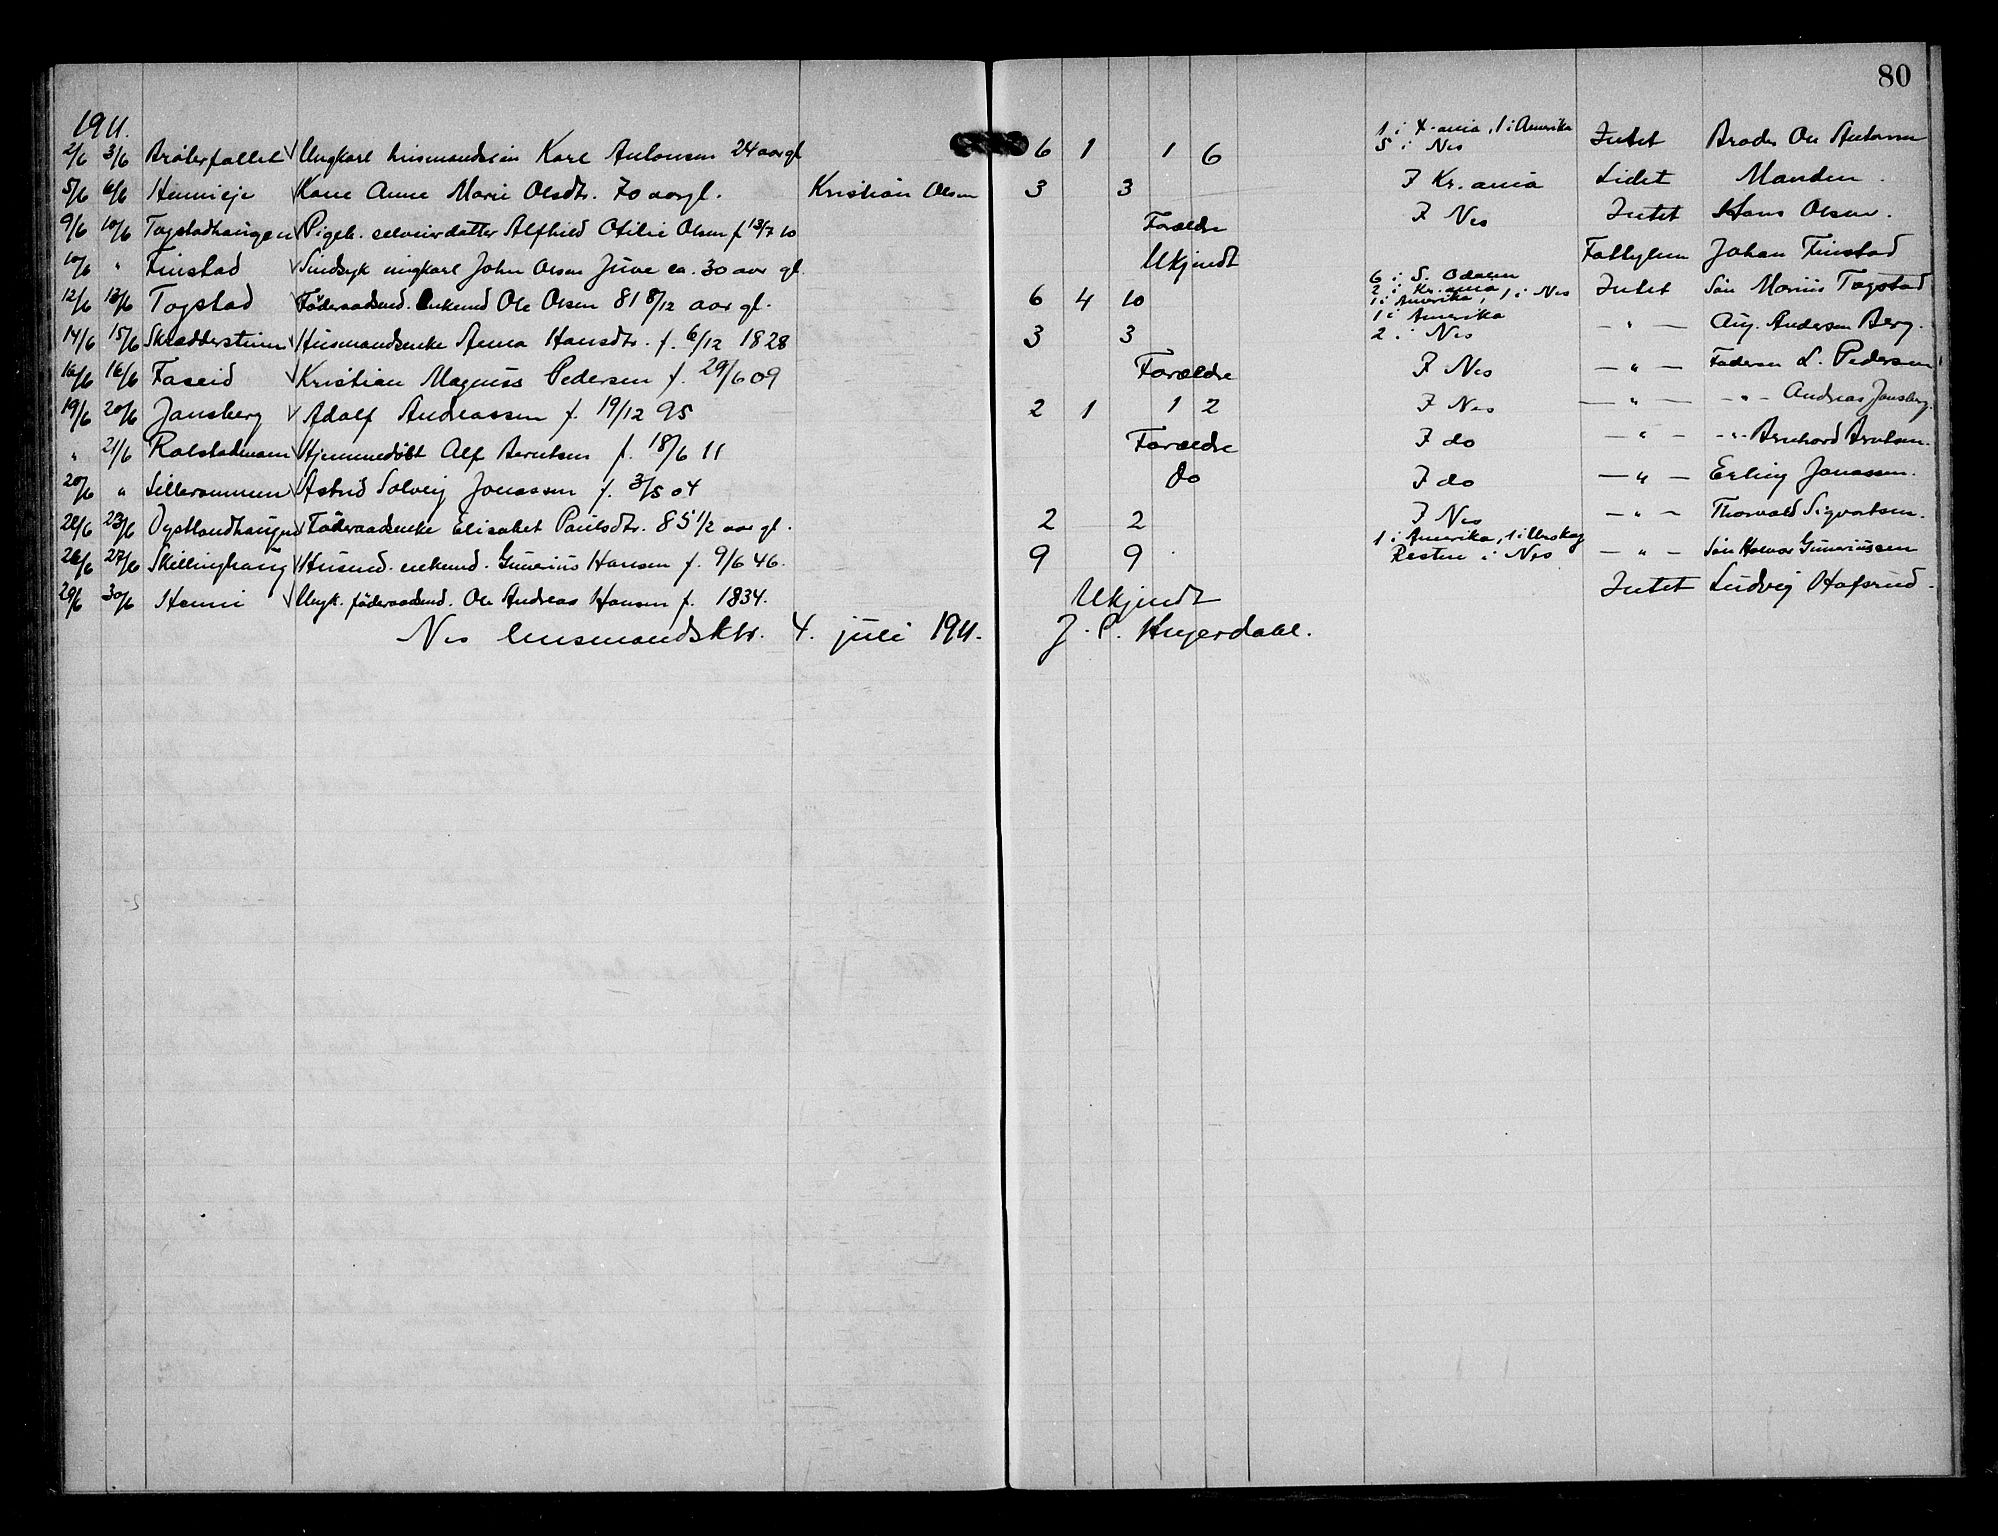 80
1911.
2/6 3/6 Ungkarl husmandssøn Karl Antonsen 24 aar gl 6 1 1 6 1 i Kr.ania, 1 i Amerika 5 i Nes Intet Broder Ole Antonsen
5/6 6/6 Hennieje Kone Anne Marie Olsdtr. 70 aar gl. Kristian Olsen 3 3 I Kr.ania Lidet Manden.
9/6 10/6 Togstadhaugen Pigeb. selveierdatter Alfhild Otilie Olsen f 13/7 10 Forældre I Nes Intet Hans Olsen.
10/6 " Finstad Sindsyk ungkarl John Olsen Juve ca. 30 aar gl. Ukjendt Fattiglem Johan Finstad
12/6 13/6 Togstad Føderaadsmd. Enkemd Ole Olsen 81 8/12 aar gl. 6 4 10 6 i S. Odalen 2 i Kr.ania 1 i Amerika, 1 i Nes Intet Søn Marius Togstad
14/6 15/6 Husmandsenke Anna Hansdtr. f. 6/12 1828 3 3 1 i Amerika 2 i Nes — " — Aug. Andersen Berg.
16/6 16/6 Faseid Kristian Magnus Pedersen f. 29/6 09 Forældre I Nes — " — Faderen L. Pedersen
19/6 20/6 Jansberg Adolf Andreassen f. 19/12 95 2 1 1 2 I Nes — " — - " - Andreas Jansberg.
" 21/6 Hjemmedøbt Alf Berntsen f. 18/6 11 Forældre I do — " — - " -
20/6 " Astrid Solveig Jonassen f. 3/5 04 Do I do — " — Erling Jonassen.
22/6 23/6 Føderaadsenke Elisabet Paulsdtr. 85 1/2 aar gl. 2 2 I Nes — " — Thorvald Sigvartsen.
26/6 27/6 Skillinghaug Husmd. enkemd. Gunerius Hansen f. 9/6 46. 9 9 1 i Amerika, 1 i Urskog Resten i Nes — " — Søn Halvor Guneriussen
29/6 30/6 Henni Ungk. føderaadsmd. Ole Andreas Hansen f. 1834. Ukjendt Intet Ludvig Hofsrud.
Nes lensmandsktr. 4. juli 1911. J. P. Huyerdahl.